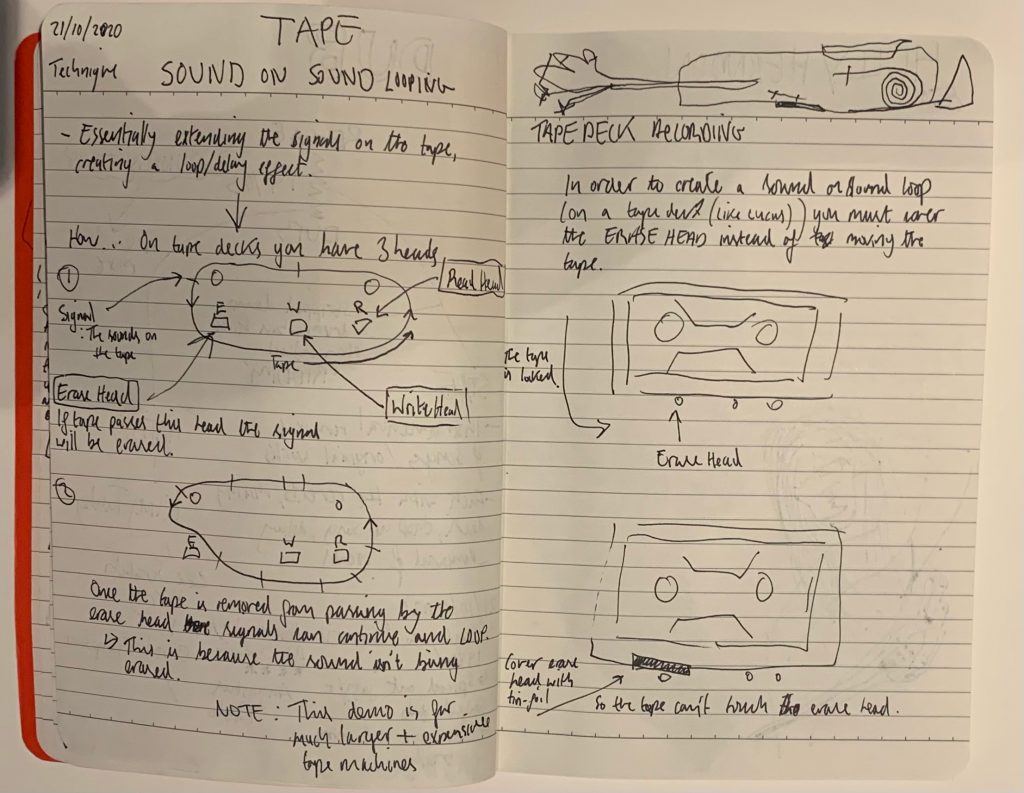 21/10/2020
TAPE
Technique
SOUND ON SOUND LOOPING
- Essentially extending the signals on the tape,
creating a loop/delay effect.
How... On tape decks you have 3 heads
1
Read Head
Signal
: The sounds on
the tape
E W R
Tape
Erase Head
Write Head
If tape passes this head the signal
will be erased.
2
E W R
Once the tape is removed from passing by the
erase head signals can continue and LOOP.
↳ This is because the sound isn't being
erased.
NOTE: This demo is for
much larger + expensive
tape machines
TAPE DECK RECORDING
In order to create a sound on sound loop
(on a tape deck (like Lucas)) you must cover
the ERASE HEAD instead of moving the
tape.
The tape
is locked.
Erase Head
Cover erase
head with
tin-foil
So the tape can't touch the erase head.